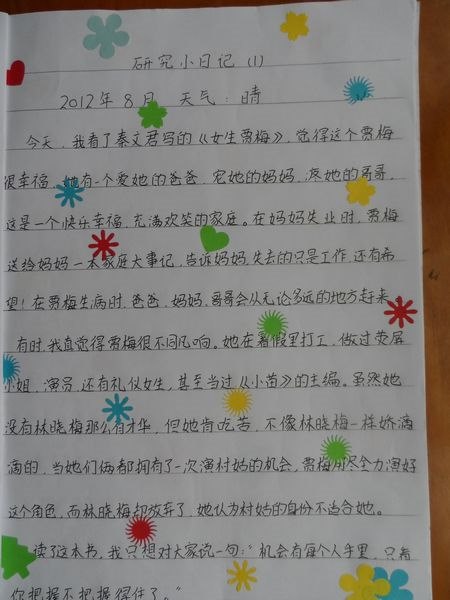 研究小日记 (1)
2012年8月 天气：晴
今天，我看了秦文君写的《女生贾梅》，觉得这个贾梅
很幸福，她有一个爱她的爸爸，宠她的妈妈，疼她的哥哥，
这是一个快乐幸福，充满欢笑的家庭。在妈妈失业时，贾梅
送给妈妈一本家庭大事记，告诉妈妈，失去的只是工作，还有希
望！在贾梅生病时，爸爸，妈妈，哥哥会从无论多远的地方赶来
有时，我真觉得贾梅很不同凡响。她在暑假里打工，做过荧屏
小姐，演员，还有礼仪女生，甚至当过《小苗》的主编。虽然她
没有林晓梅那么有才华，但她肯吃苦，不像林晓梅一样娇滴
滴的，当她们俩都拥有了一次演村姑的机会，贾梅用尽全力演好
这个角色，而林晓梅却放弃了，她认为村姑的身份不适合她。
读了这本书，我只想对大家说一句：“机会在每个人手里，只看
你把握不把握得住了。”